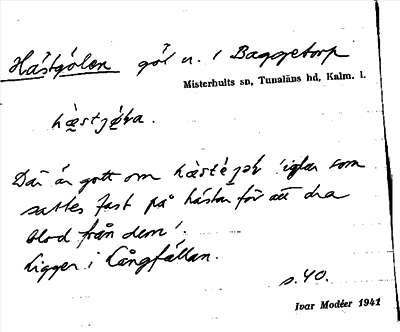 Hästgölen göl n. i Baggetorp
Misterhults sn, Tunaläns hd, Kalm. l.
hæstjøʟa.
Där är gott om 'iglar som
sattes fast på hästar för att dra
blod från dem'.
Ligger i Långfällan.
s. 40.
Ivar Modéer 1941